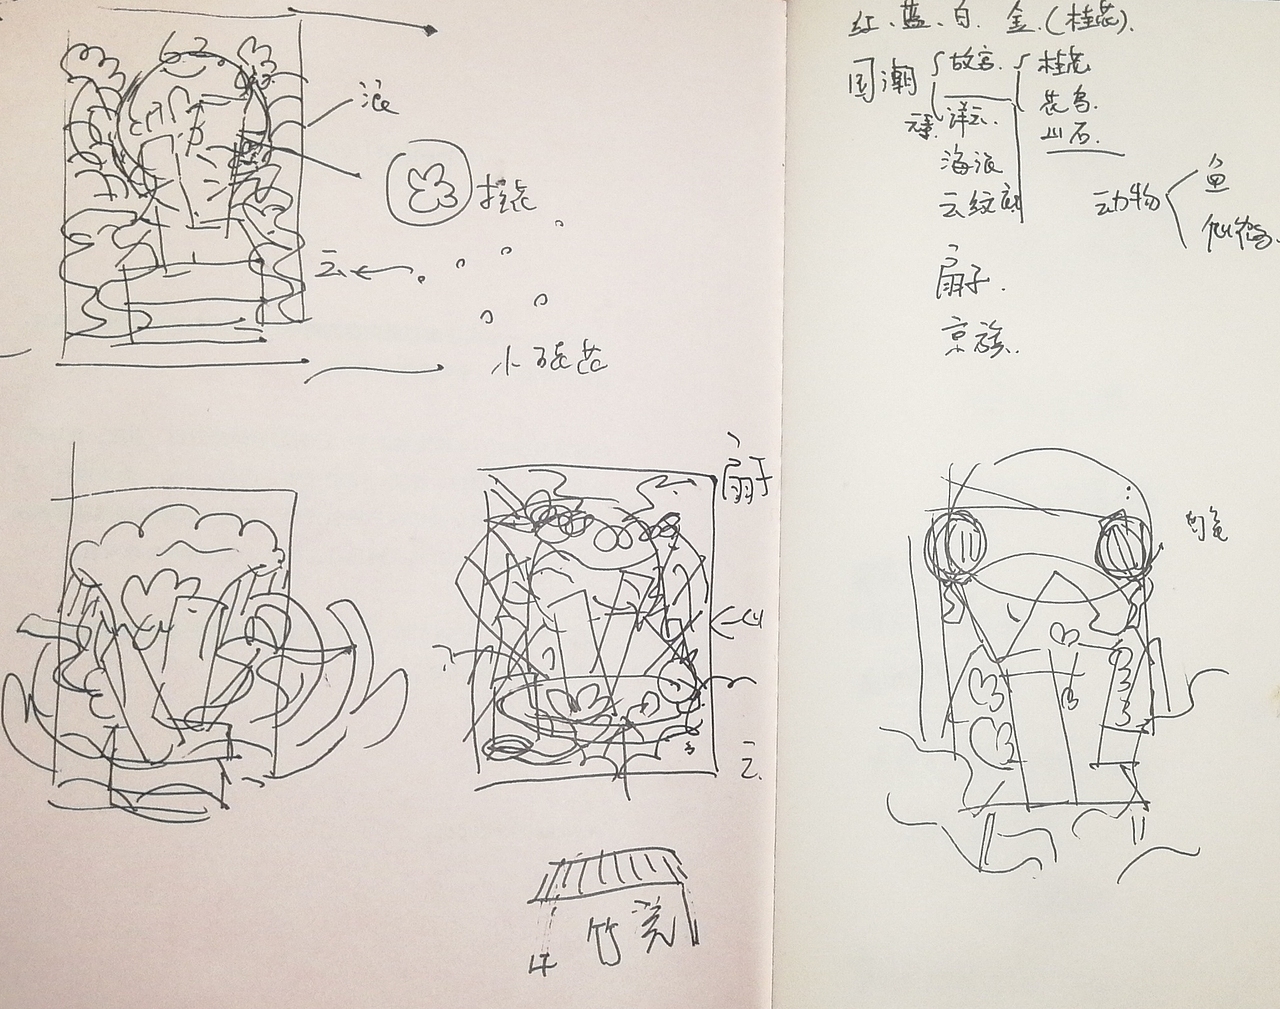 浪
桂花
云
小碎花
扇子
山
云
红、蓝、白、金(桂花).
国潮
故宫.
祥云.
海浪
云纹
扇子.
京族.
桂花
花鸟.
山石.
动物
鱼
仙鹤.